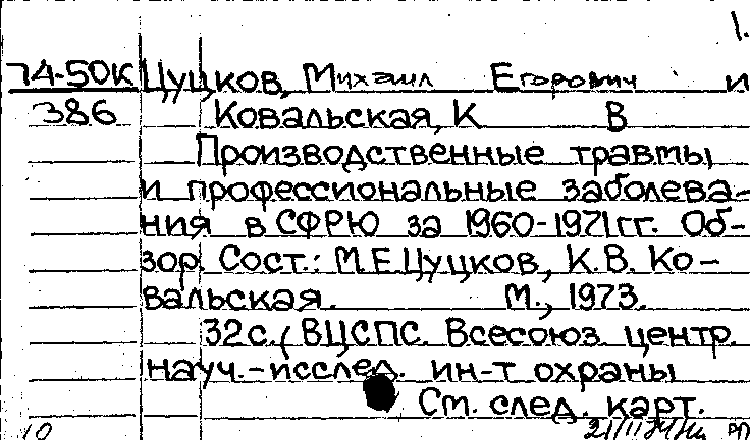 1.
74-50К Цуцков, Михаил Егорович и
386 Ковальская, К В
Производственные травмы
и профессиональные заболева-
ния в СФРЮ за 1960-1971 гг. Об-
зор. Сост.: М.Е.Цуцков, К.В. Ко-
вальская. М., 1973.
32с. (ВЦСПС. Всесоюз. центр.
науч.-исслед. ин-т охраны
См. след. карт.
10